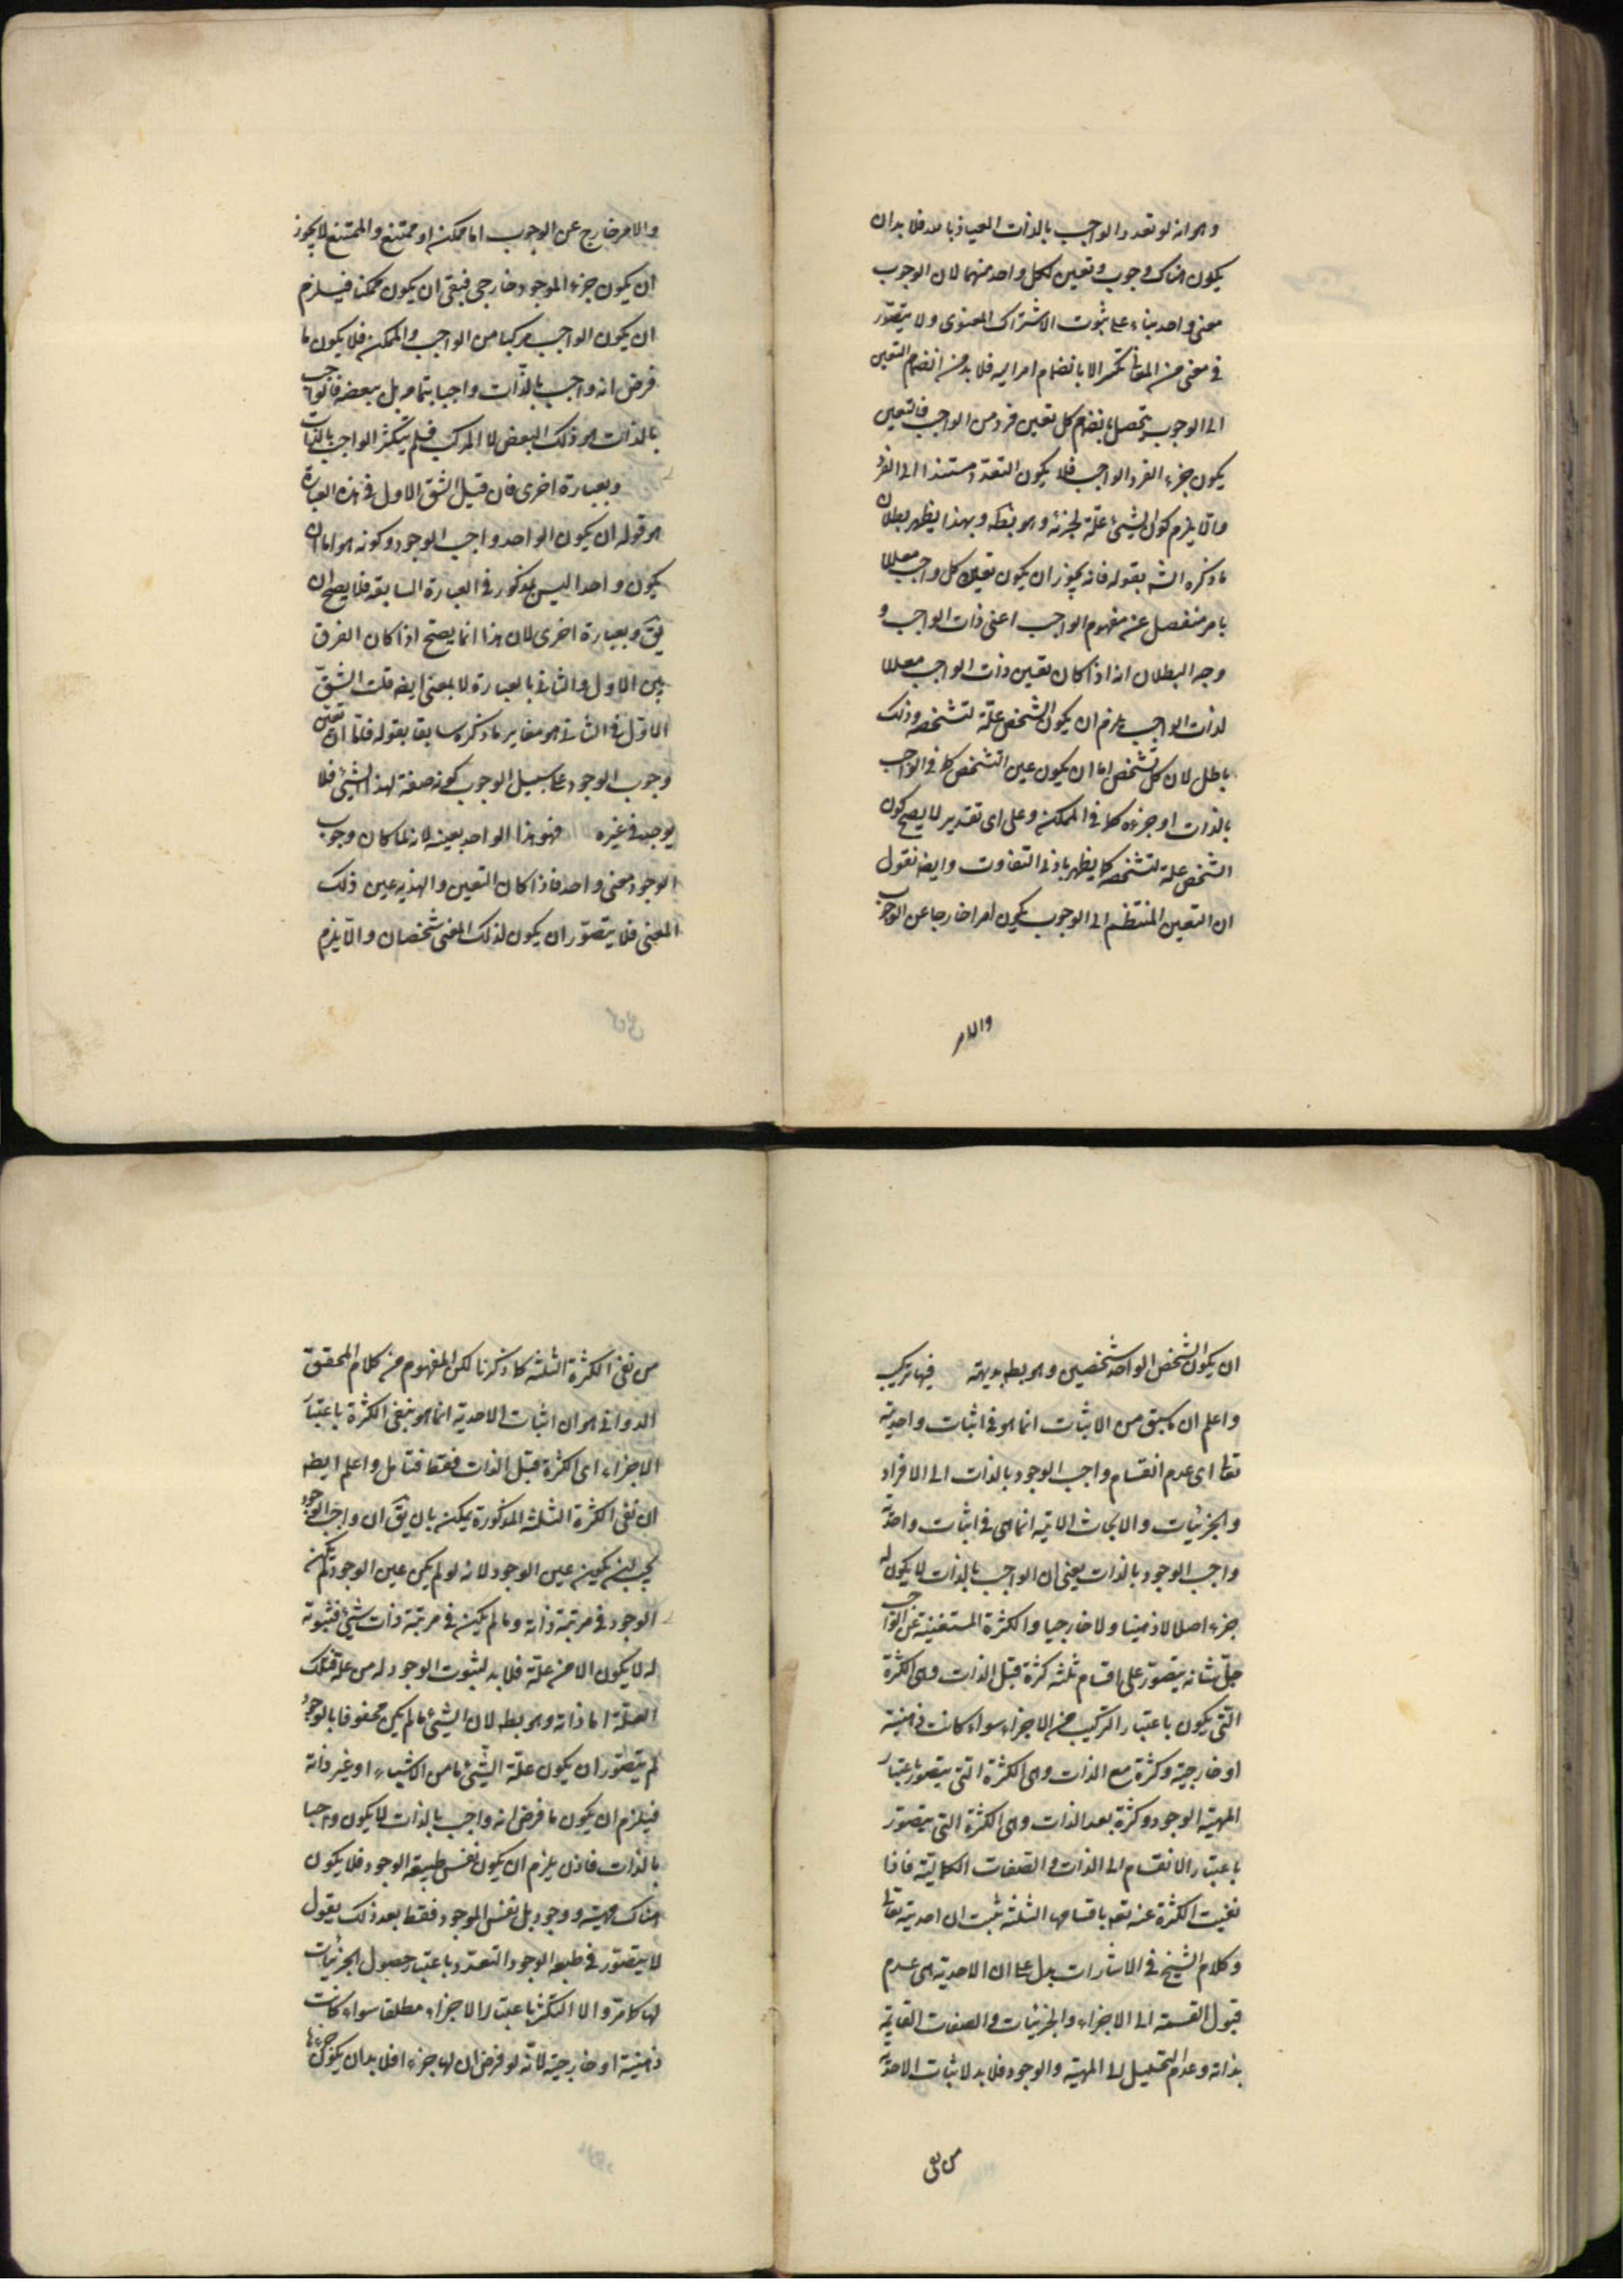 وهو انه لو تعدد الواجب بالذات العياذ بالله فلا بد ان
يكون هناك وجوب وتعين لكل واحد منهما لان الوجوب
معنى واحد بناء على ثبوت الاشتراك المعنوى ولا يتصور
فى معنى من المعانى تكثر الا بانضمام امر اليه فلا بد من انضمام التعين
الى الوجوب يتحصل بانضمام كل تعين فرد من الواجب فالتعين
يكون جزء الفرد الواجب فلا يكون التعدد مستندا الى الفرد
والا يلزم كون الشيئ علة لجزئه وهو بط وبهذا يظهر بطلان
ما ذكره الش بقوله فانه يجوز ان يكون تعين كل واجب معللا
بامر منفصل عنه مفهوم الواجب اعنى ذات الواجب و
وجه البطلان انه اذا كان تعين ذات الواجب معللا
لذات الواجب يلزم ان يكون الشخص علة لتشخصه وذلك
باطل لان كل تشخص اما ان يكون عين الشخص كما فى الواجب
بالذات او جزءه كما فى الممكن وعلى اى تقدير لا يصح كون
الشخص علة لتشخصه كما يظهر بادنى التفاوت وايضا نقول
ان التعين المنتظم الى الوجوب يكون امرا خارجا عن الوجوب
والامر
والامر خارج عن الوجوب اما ممكن او ممتنع والممتنع لا يجوز
ان يكون جزء الموجود خارجى فبقى ان يكون ممكنا فيلزم
ان يكون الواجب مركبا من الواجب والممكن فلا يكون ما
فرض انه واجب بالذات واجبا بتمامه بل ببعضه فالواجب
بالذات هو ذلك البعض لا المركب فلم يتكثر الواجب بالذات
وبعبارة اخرى فان قيل الشق الاول فى هذه العبارة
هو قوله ان يكون الواحد واجب الوجود وكونه هو اما ان
يكون واحدا ليس بمذكور فى العبارة السابقه فلا يصح ان
يق وبعبارة اخرى لان هذا انما يصح اذا كان الفرق
بين الاول والثانى بالعبارة لا بالمعنى ايضه قلت الشق
الاول فى الثانى هو مغاير ما ذكره سابقا بقوله فاما ان تعين
وجوب الوجود على سبيل الوجوب كونه صفة لهذا الشيئ فلا
يوجد فى غيره فهو هذا الواحد بعينه لانه لما كان وجوب
الوجود معنى واحد فاذا كان التعين والهذيه عين ذلك
المعنى فلا يتصور ان يكون لذلك المعنى شخصان والا يلزم
ان يكون الشخص الواحد شخصين وهو بط بديهة فيها تركيب
واعلم ان ما سبق من الاثبات انما هو فى اثبات واحدية
تعالى اى عدم انقسام واجب الوجود بالذات الى الافراد
والجزئيات والابحاث الاتيه انما هى فى اثبات واحدية
واجب الوجود بالذات يعنى ان الواجب بالذات لا يكون له
جزء اصلا لا ذهنيا ولا خارجيا والكثرة المستغنية عن الواجب
جل شانه يتصور على اقسام ثلثه كثرة قبل الذات وهى الكثرة
التى يكون باعتبار التركيب من الاجزاء سواء كانت ذهنية
او خارجية وكثرة مع الذات وهى الكثرة التى يتصور باعتبار
المهية الوجود وكثرة بعد الذات وهى الكثرة التى يتصور
باعتبار الانقسام الى الذات والصفات الكمالية فاذا
نفيت الكثرة عنه تعه باقسامها الثلثة ثبت ان احديته تعالى
وكلام الشيخ فى الاشارات يدل على ان الاحدية هى عدم
قبول القسمة الى الاجزاء والجزئيات والصفات القايمة
بذاته وعدم التحليل الى المهية والوجود فلا بد لاثبات الاحدية
من نفى
من نفى الكثرة الثلثة كما ذكرنا لكن المفهوم من كلام المحقق
الدوانى هو ان اثبات الاحدية انما هو بنفى الكثرة باعتبار
الاجزاء اى الكثرة قبل الذات فقط فتامل واعلم ايضه
ان نفى الكثرة الثلثة المذكورة يمكن بان يق ان واجب الوجود
يجب ان يكون عين الوجود لانه لو لم يكن عين الوجود لم يكن
الوجود فى مرتبة ذاته وما لم يكن فى مرتبة ذات شيئ فثبوته
له لا يكون الا من علة فلا بد لثبوت الوجود له من علة فتلك
العلة اما ذاته وهو بطه لان الشيئ ما لم يكن محفوفا بالوجود
لم يتصور ان يكون علة الشيئ ما من الاشياء او غير ذاته
فيلزم ان يكون ما فرض انه واجب بالذات لا يكون واجبا
بالذات فاذن يلزم ان يكون نفس طبيعة الوجود فلا يكون
هناك مهية ووجود بل نفس الموجود فقط بعد ذلك يقول
لا يتصور فى طبيعة الوجود التعدد باعتبار حصول الجزئيات
لها كما مر والا التكثر باعتبار الاجزاء مطلقا سواء كانت
ذهنية او خارجية لانه لو فرض ان لها جزء افلا بد ان يكون جزءها